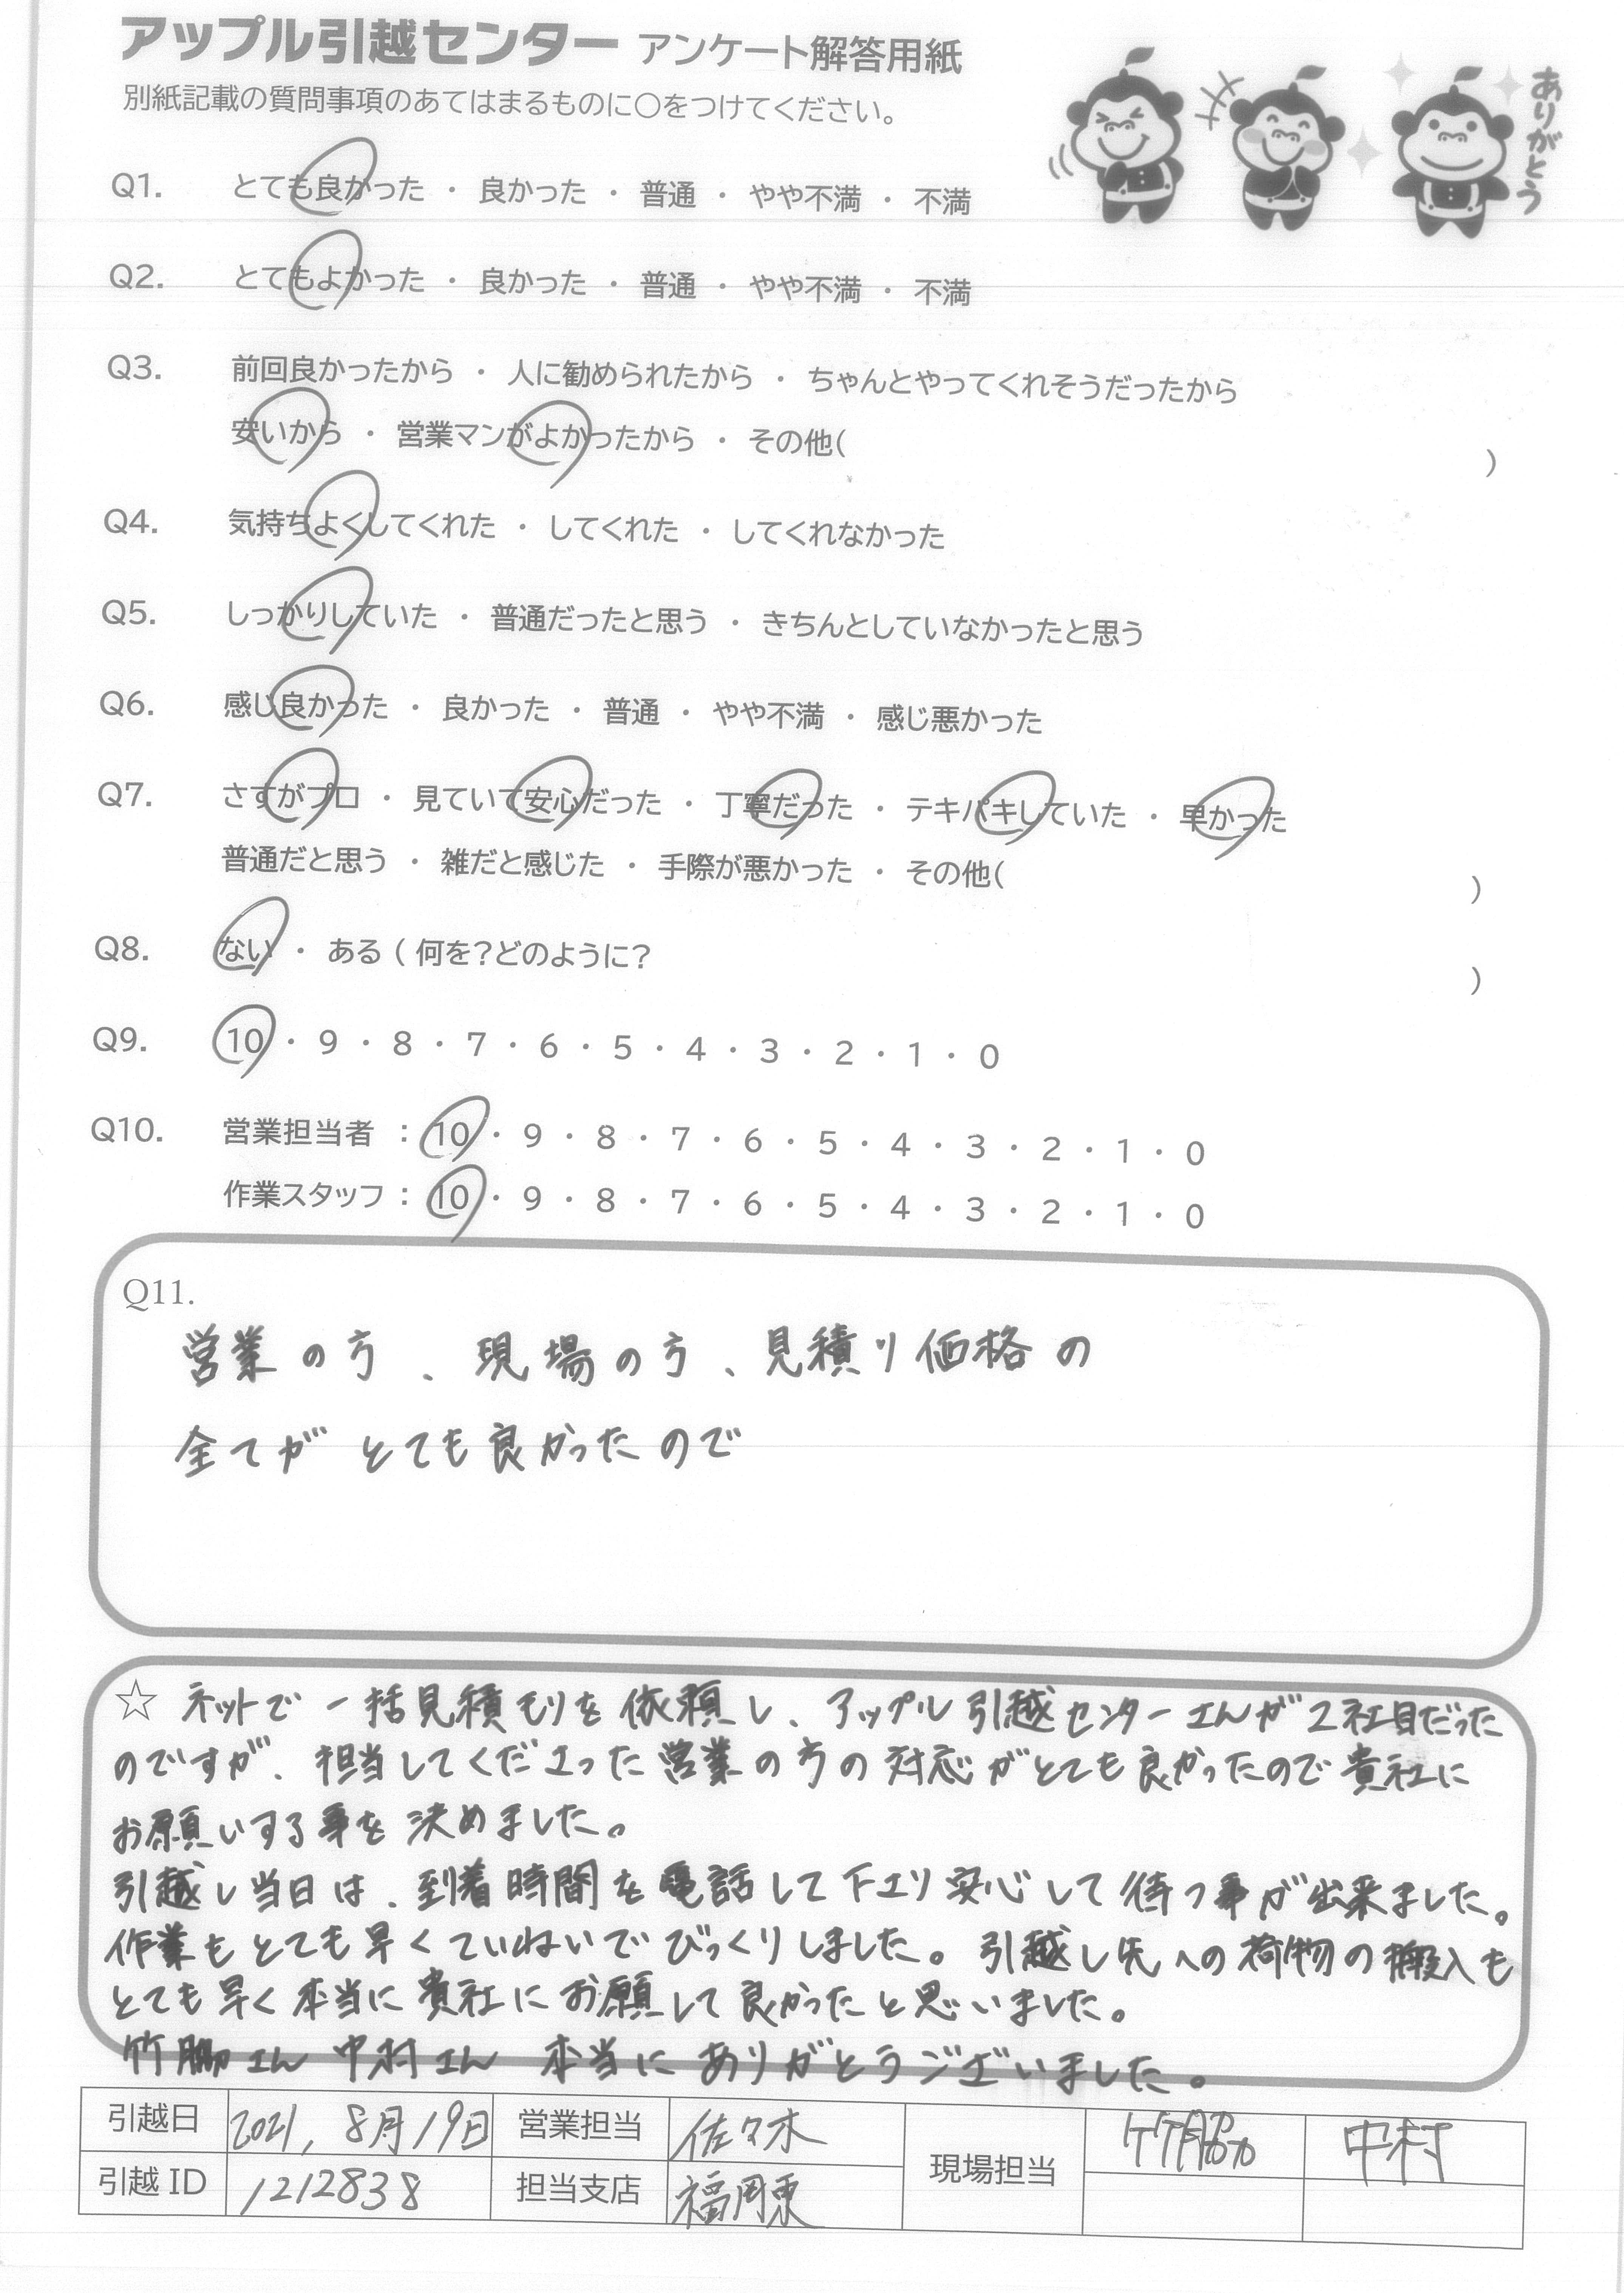 アップル引越センター アンケート解答用紙
別紙記載の質問事項のあてはまるものに○をつけてください。
ありがとう
Q1. とても良かった ・ 良かった ・ 普通 ・ やや不満 ・ 不満
Q2. とてもよかった ・ 良かった ・ 普通 ・ やや不満 ・ 不満
Q3. 前回良かったから ・ 人に勧められたから ・ ちゃんとやってくれそうだったから
安いから ・ 営業マンがよかったから ・ その他( )
Q4. 気持ちよくしてくれた ・ してくれた ・ してくれなかった
Q5. しっかりしていた ・ 普通だったと思う ・ きちんとしていなかったと思う
Q6. 感じ良かった ・ 良かった ・ 普通 ・ やや不満 ・ 感じ悪かった
Q7. さすがプロ ・ 見ていて安心だった ・ 丁寧だった ・ テキパキしていた ・ 早かった
普通だと思う ・ 雑だと感じた ・ 手際が悪かった ・ その他( )
Q8. ない ・ ある ( 何を?どのように? )
Q9. 10 ・ 9 ・ 8 ・ 7 ・ 6 ・ 5 ・ 4 ・ 3 ・ 2 ・ 1 ・ 0
Q10. 営業担当者 : 10 ・ 9 ・ 8 ・ 7 ・ 6 ・ 5 ・ 4 ・ 3 ・ 2 ・ 1 ・ 0
作業スタッフ : 10 ・ 9 ・ 8 ・ 7 ・ 6 ・ 5 ・ 4 ・ 3 ・ 2 ・ 1 ・ 0
Q11.
営業の方、現場の方、見積り価格の
全てが とても良かったので
☆ ネットで一括見積もりを依頼し、アップル引越センターさんが2社目だった
のですが、担当してくださった営業の方の対応がとても良かったので貴社に
お願いする事を決めました。
引越し当日は、到着時間を電話して下さり安心して待つ事が出来ました。
作業もとても早くていねいでびっくりしました。引越し先への荷物の搬入も
とても早く本当に貴社にお願して良かったと思いました。
竹脇さん 中村さん 本当にありがとうございました。
引越日 2021, 8月19日 営業担当 佐々木 現場担当 竹脇 中村
引越ID 1212838 担当支店 福岡東